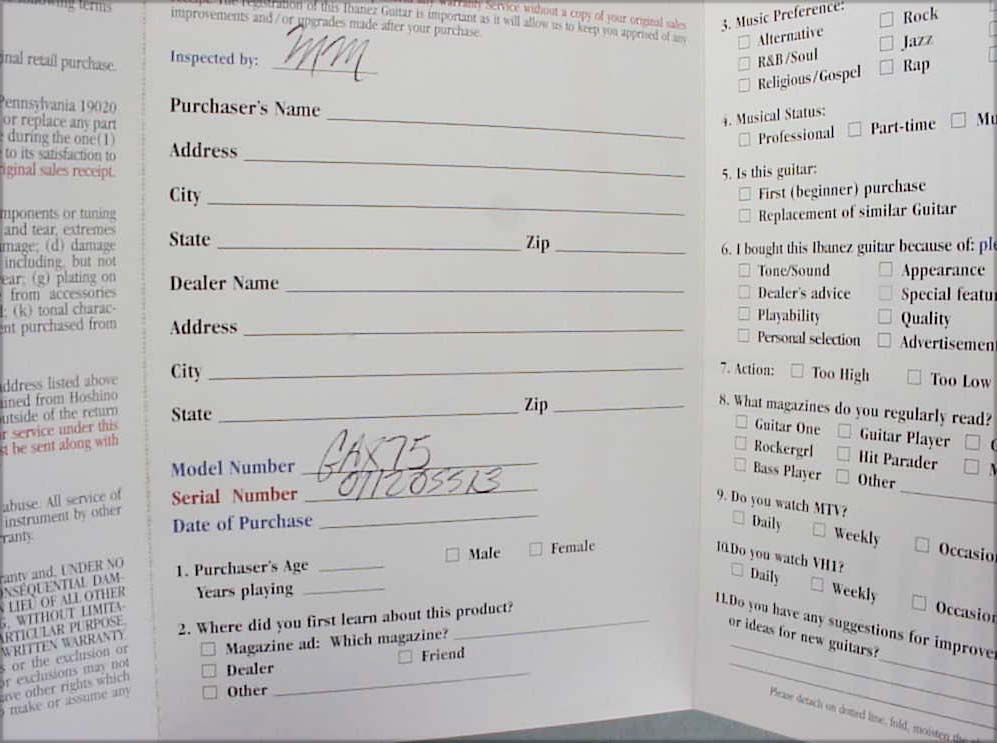 following terms
inal retail purchase.
Pennsylvania 19020
or replace any part
during the one(1)
to its satisfaction to
riginal sales receipt.
mponents or tuning
and tear, extremes
mage; (d) damage
including, but not
ear; (g) plating on
from accessories
(k) tonal charac-
ent purchased from
address listed above
ined from Hoshino
outside of the return
r service under this
st be sent along with
abuse. All service of
instrument by other
ranty.
ranty and, UNDER NO
ONSEQUENTIAL DAM-
LIEU OF ALL OTHER
WITHOUT LIMITA-
ARTICULAR PURPOSE,
WRITTEN WARRANTY.
s or the exclusion or
or exclusions may not
ave other rights which
make or assume any
any warranty Service without a copy of your original sales
receipt. The registration of this Ibanez Guitar is important as it will allow us to keep you apprised of any
improvements and/or upgrades made after your purchase.
Inspected by: MM
Purchaser's Name
Address
City
State Zip
Dealer Name
Address
City
State Zip
Model Number GAX75
Serial Number
Date of Purchase
1. Purchaser's Age Male Female
Years playing
2. Where did you first learn about this product?
Magazine ad: Which magazine?
Dealer Friend
Other
3. Music Preference:
Alternative Rock
R&B/Soul Jazz
Religious/Gospel Rap
4. Musical Status:
Professional Part-time Mu
5. Is this guitar:
First (beginner) purchase
Replacement of similar Guitar
6. I bought this Ibanez guitar because of: ple
Tone/Sound Appearance
Dealer's advice Special featur
Playability Quality
Personal selection Advertisemen
7. Action: Too High Too Low
8. What magazines do you regularly read?
Guitar One Guitar Player
Rockergrl Hit Parader
Bass Player Other
9. Do you watch MTV?
Daily Weekly Occasion
10.Do you watch VH1?
Daily Weekly Occasion
11.Do you have any suggestions for improve
or ideas for new guitars?
Please detach on dotted line, fold, moisten the